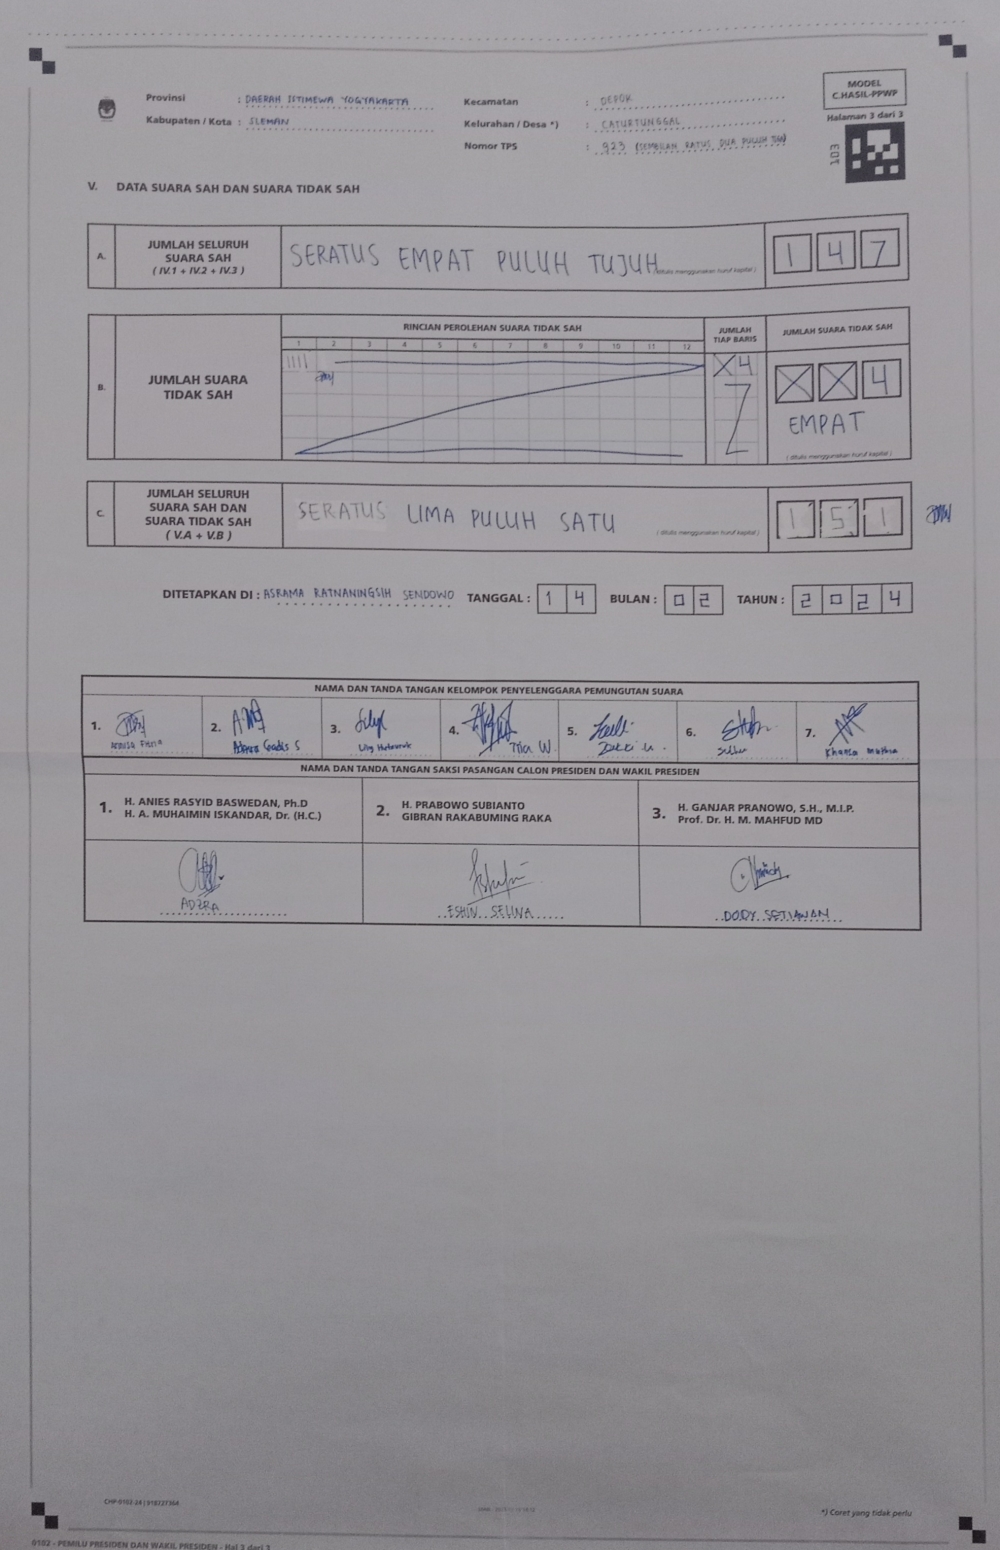 MODEL
C.HASIL-PPWP
Halaman 3 dari 3
Provinsi : DAERAH ISTIMEWA YOGYAKARTA
Kecamatan : DEPOK
Kabupaten / Kota : SLEMAN
Kelurahan / Desa *) : CATURTUNGGAL
Nomor TPS : 923 (SEMBILAN RATUS DUA PULUH TIGA)
E01
V. DATA SUARA SAH DAN SUARA TIDAK SAH
A. JUMLAH SELURUH
SUARA SAH
( IV.1 + IV.2 + IV.3 )
SERATUS EMPAT PULUH TUJUH
( ditulis menggunakan huruf kapital )
1 4 7
B. JUMLAH SUARA
TIDAK SAH
RINCIAN PEROLEHAN SUARA TIDAK SAH
1 2 3 4 5 6 7 8 9 10 11 12
JUMLAH
TIAP BARIS
X4
JUMLAH SUARA TIDAK SAH
X X 4
EMPAT
( ditulis menggunakan huruf kapital )
C. JUMLAH SELURUH
SUARA SAH DAN
SUARA TIDAK SAH
( V.A + V.B )
SERATUS LIMA PULUH SATU
( ditulis menggunakan huruf kapital )
1 5 1
DITETAPKAN DI : ASRAMA RATNANINGSIH SENDOWO TANGGAL : 1 4 BULAN : 0 2 TAHUN : 2 0 2 4
NAMA DAN TANDA TANGAN KELOMPOK PENYELENGGARA PEMUNGUTAN SUARA
1. 2. 3. 4. 5. 6. 7.
NAMA DAN TANDA TANGAN SAKSI PASANGAN CALON PRESIDEN DAN WAKIL PRESIDEN
1. H. ANIES RASYID BASWEDAN, Ph.D
H. A. MUHAIMIN ISKANDAR, Dr. (H.C.)
2. H. PRABOWO SUBIANTO
GIBRAN RAKABUMING RAKA
3. H. GANJAR PRANOWO, S.H., M.I.P.
Prof. Dr. H. M. MAHFUD MD
ADZRA
ESHIN SELINA
DODY SETIAWAN
*) Coret yang tidak perlu
0102 - PEMILU PRESIDEN DAN WAKIL PRESIDEN - Hal 3 dari 3